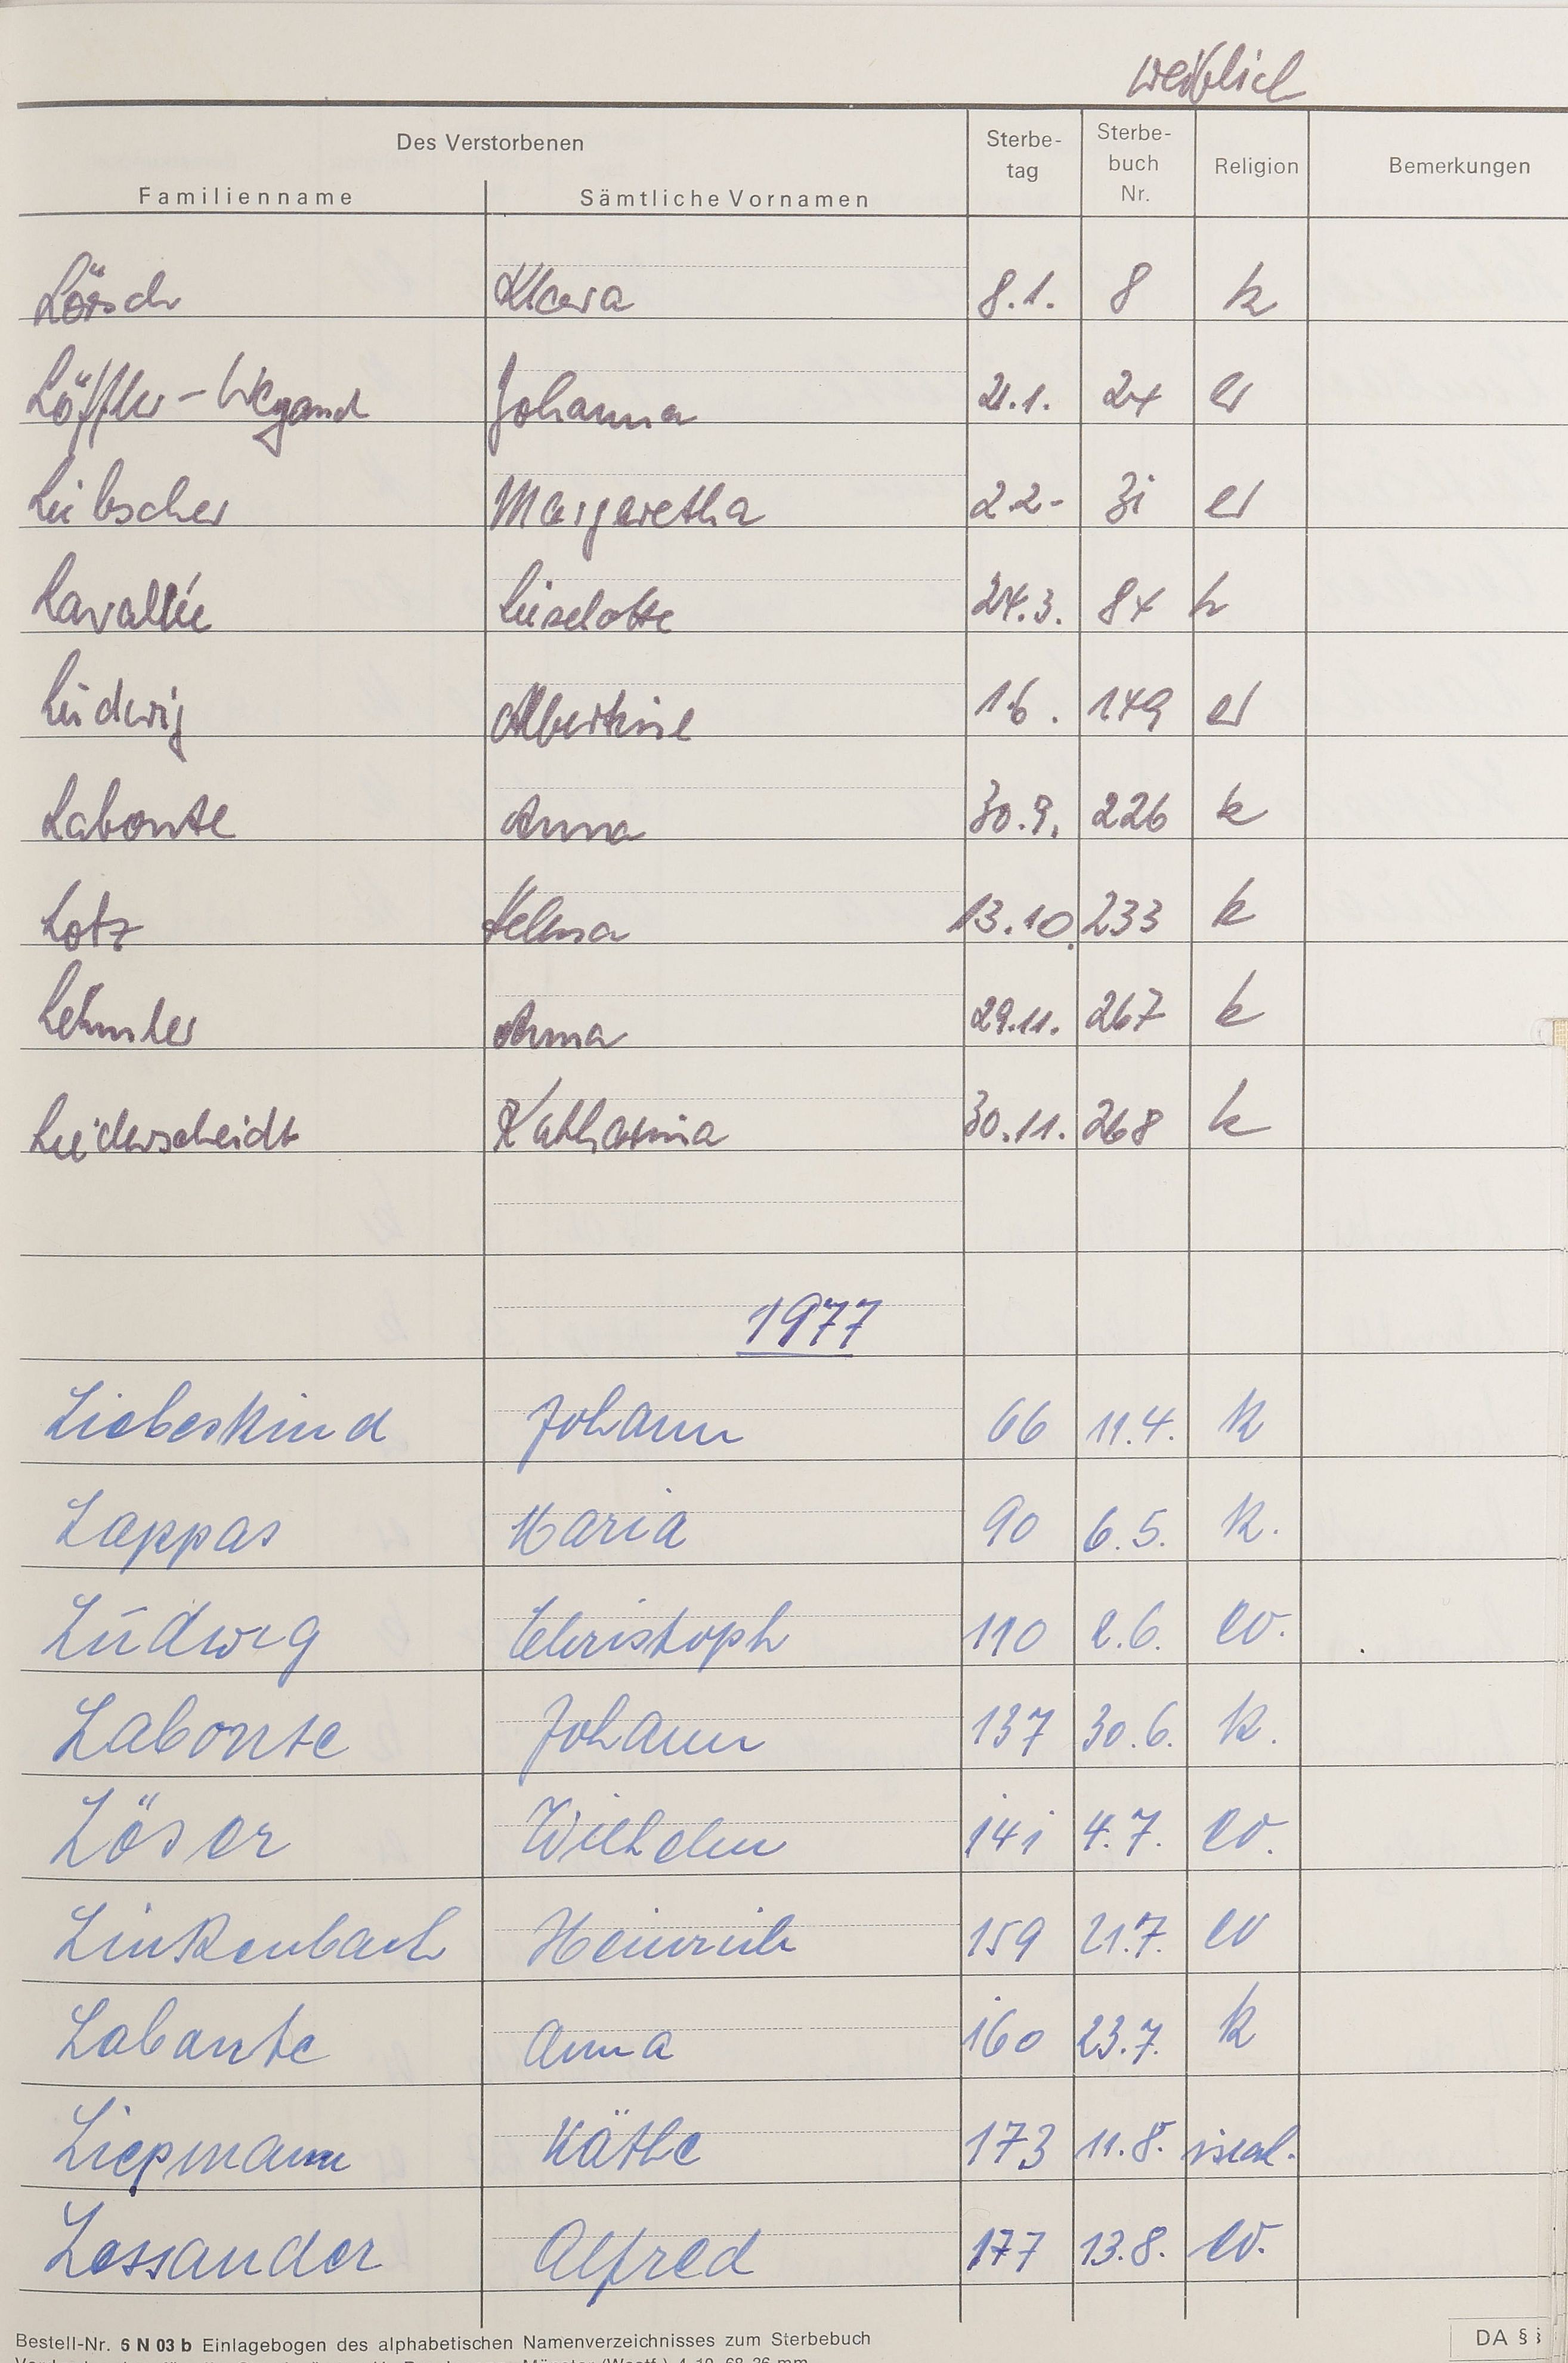 weiblich
Des Verstorbenen
Familienname Sämtliche Vornamen Sterbe-tag Sterbe-buch Nr. Religion Bemerkungen
Lörsch Klara 8.1. 8 k
Löffler-Wegand Johanna 21.1. 24 ev
Lübscher Margaretha 2.2- 31 ev
Lavallée Lieselotte 24.3. 84 k
Ludwig Albertine 1.6. 149 ev
Labonte Anna 30.9. 226 k
Lotz Helena 13.10. 233 k
Anna 29.11. 267 k
Lüderscheidt Katharina 30.11. 268 k
1977
Liebeskind Johann 66 11.4. k
Lappas Maria 90 6.5. k.
Ludwig Christoph 110 2.6. ev.
Labonte Johann 137 30.6. k.
Löser Wilhelm 141 4.7. ev.
Linkenbach Heinrich 159 21.7. ev
Labonte Anna 160 23.7. k
Liepmann Käthe 173 11.8. isral.
Lessander Alfred 177 13.8. ev.
Bestell-Nr. 5 N 03 b Einlagebogen des alphabetischen Namenverzeichnisses zum Sterbebuch
DA §